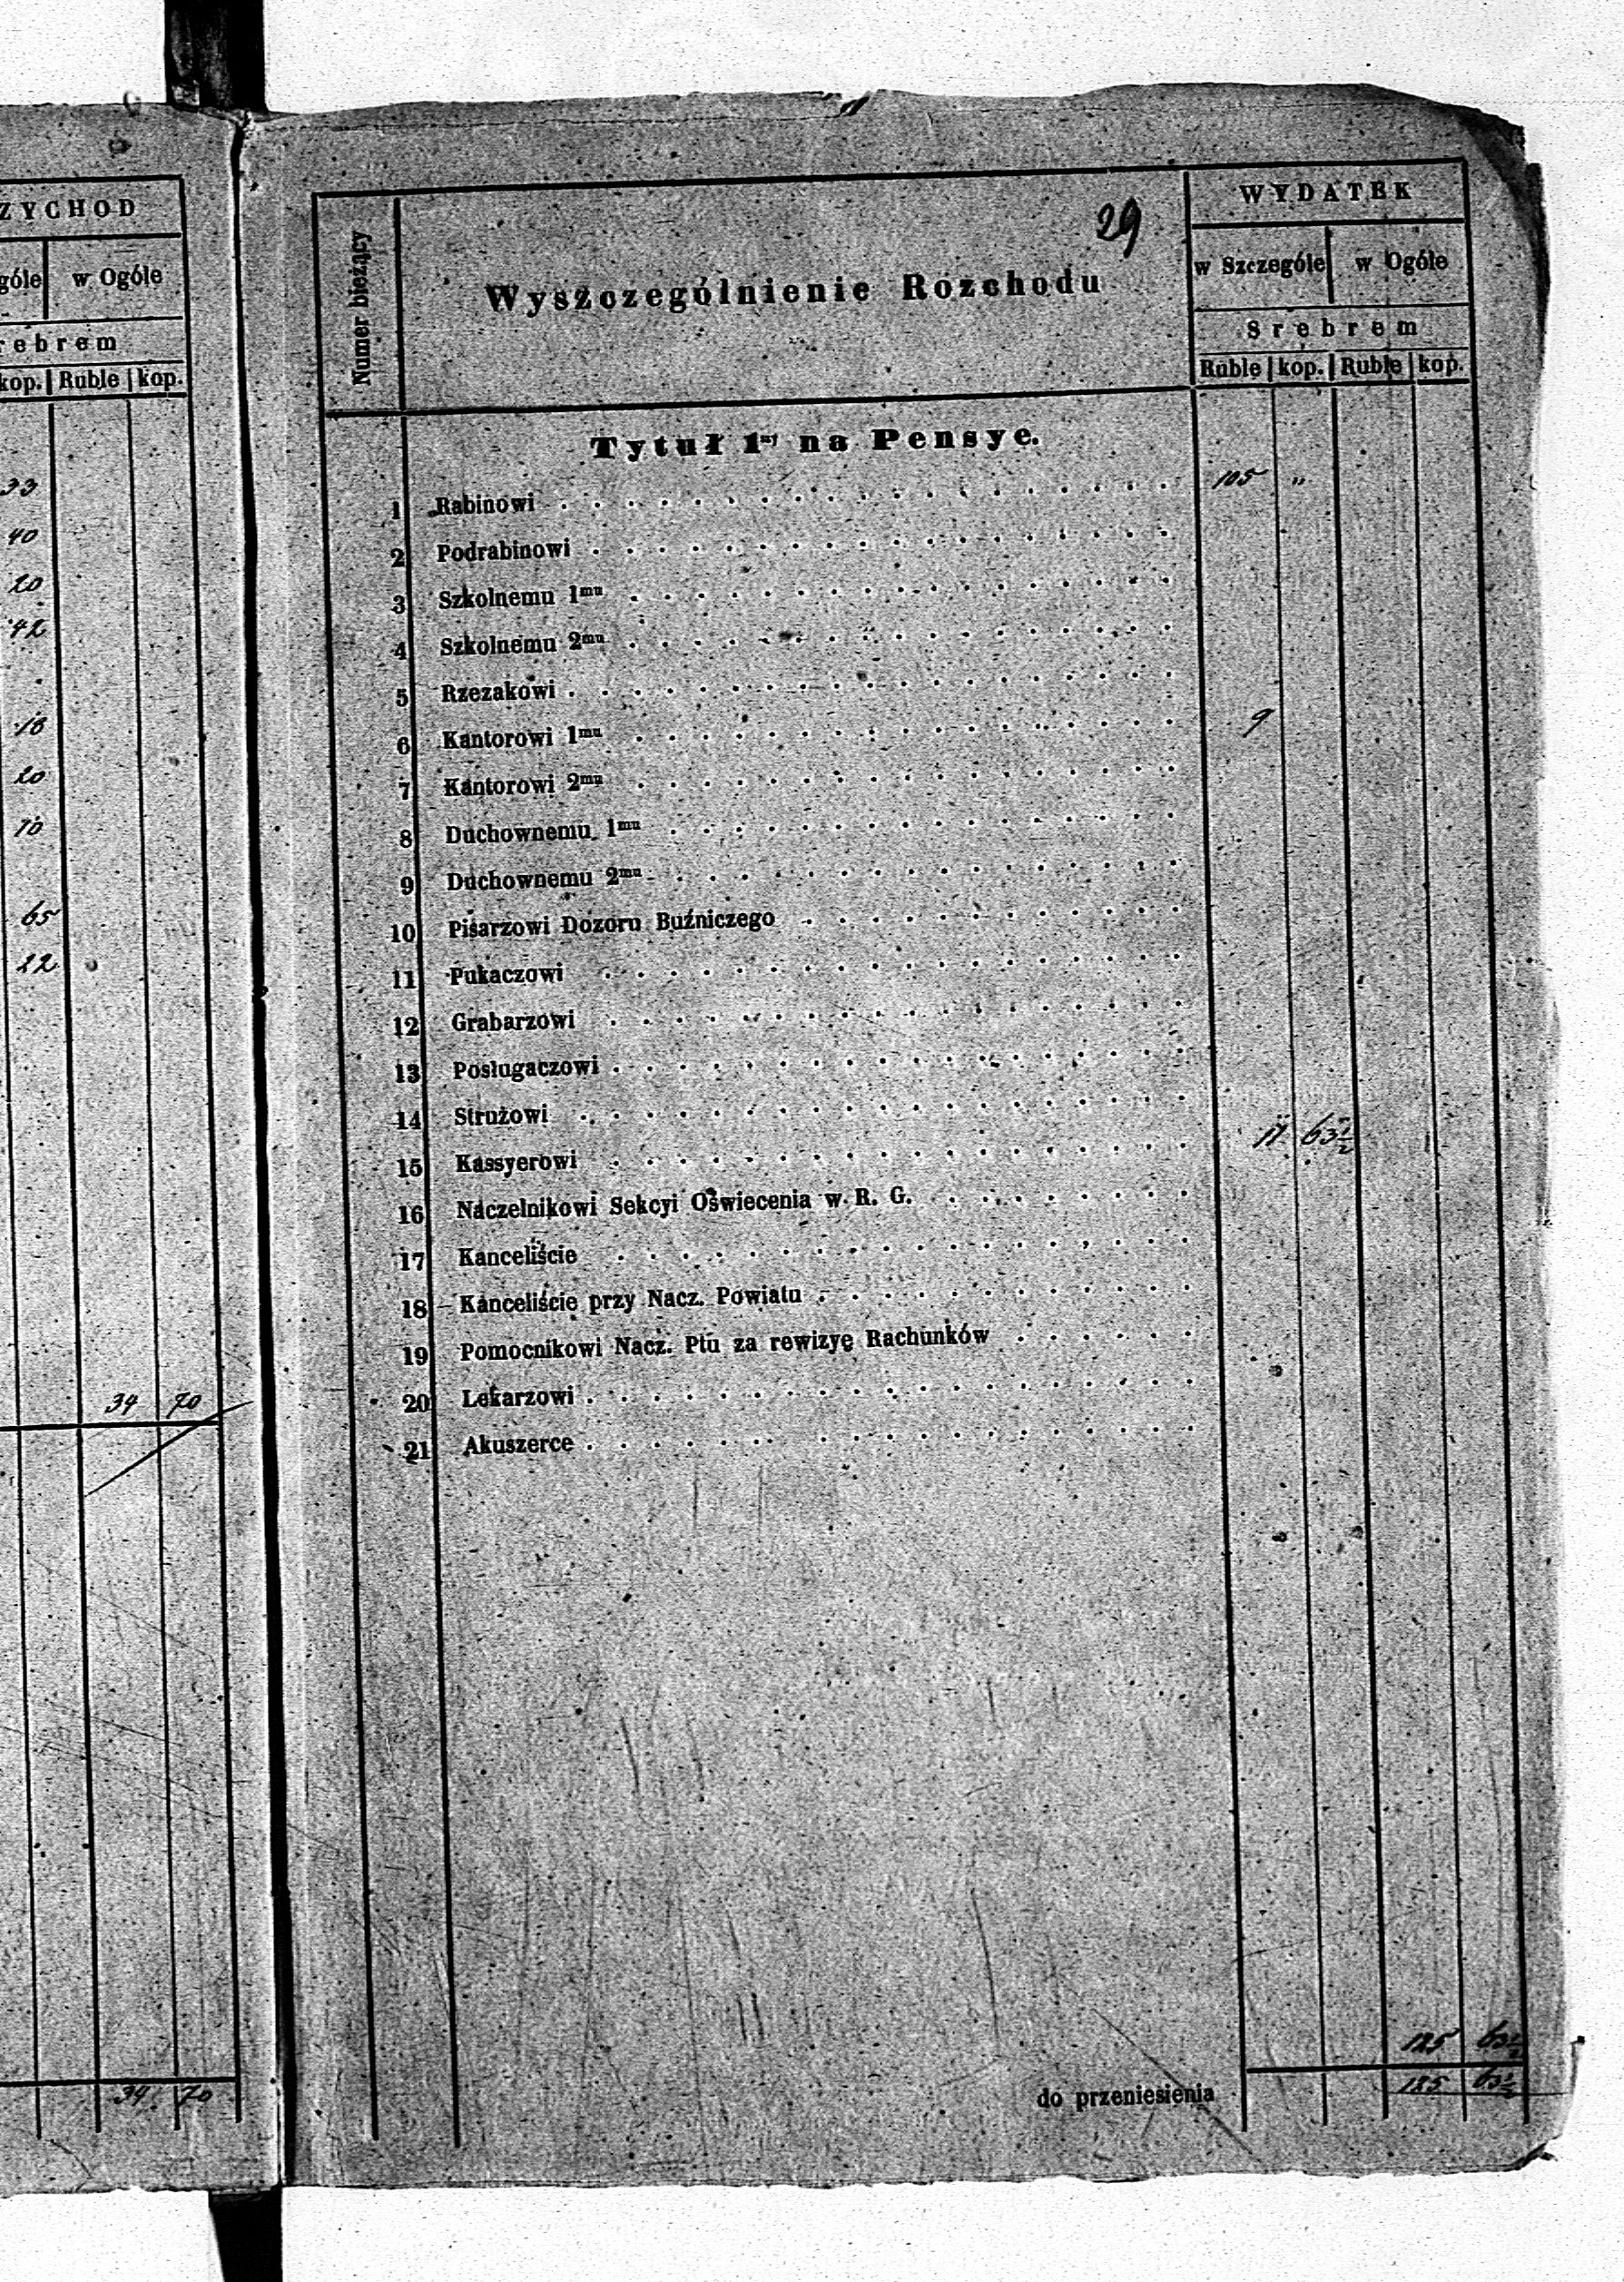 ZYCHOD
góle w Ogóle
rebrem
kop. Ruble kop.
33
40
20
42
18
20
10
65
22
34 70
34 70
29
Numer bieżący
Wyszczególnienie Rozchodu
WYDATEK
w Szczególe w Ogóle
Srebrem
Ruble kop. Ruble kop.
Tytuł 1ny na Pensye.
1 Rabinowi . . . . . 105 „
2 Podrabinowi . . . . .
3 Szkolnemu 1mu . . . . .
4 Szkolnemu 2mu . . . . .
5 Rzezakowi . . . . .
6 Kantorowi 1mu . . . . . 9
7 Kantorowi 2mu . . . . .
8 Duchownemu 1mu . . . . .
9 Duchownemu 2mu . . . . .
10 Pisarzowi Dozoru Buźniczego . . . . .
11 Pukaczowi . . . . .
12 Grabarzowi . . . . .
13 Posługaczowi . . . . .
14 Strużowi . . . . .
15 Kassyerowi . . . . . 11 63½
16 Naczelnikowi Sekcyi Oświecenia w R. G. . . . . .
17 Kanceliście . . . . .
18 Kanceliście przy Nacz. Powiatu . . . . .
19 Pomocnikowi Nacz. Ptu za rewizyę Rachunków . . . . .
20 Lekarzowi . . . . .
21 Akuszerce . . . . .
125 63½
do przeniesienia 125 63½